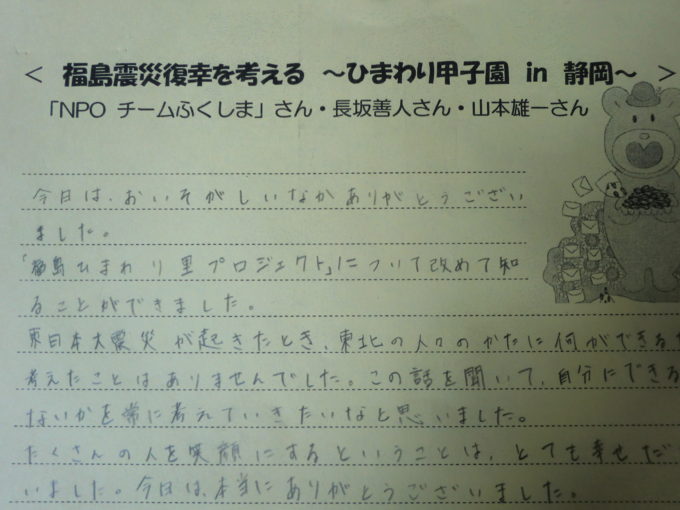 ＜ 福島震災復幸を考える ～ひまわり甲子園 in 静岡～ ＞
「NPO チームふくしま」さん・長坂善人さん・山本雄一さん
今日は、おいそがしいなかありがとうござい
ました。
「福島ひまわり里プロジェクト」について改めて知
ることができました。
東日本大震災が起きたとき、東北の人々のかたに何ができる
考えたことはありませんでした。この話を聞いて、自分にできる
ないかを常に考えていきたいなと思いました。
たくさんの人を笑顔にするということは、とても幸せだ
いました。今日は、本当にありがとうございました。